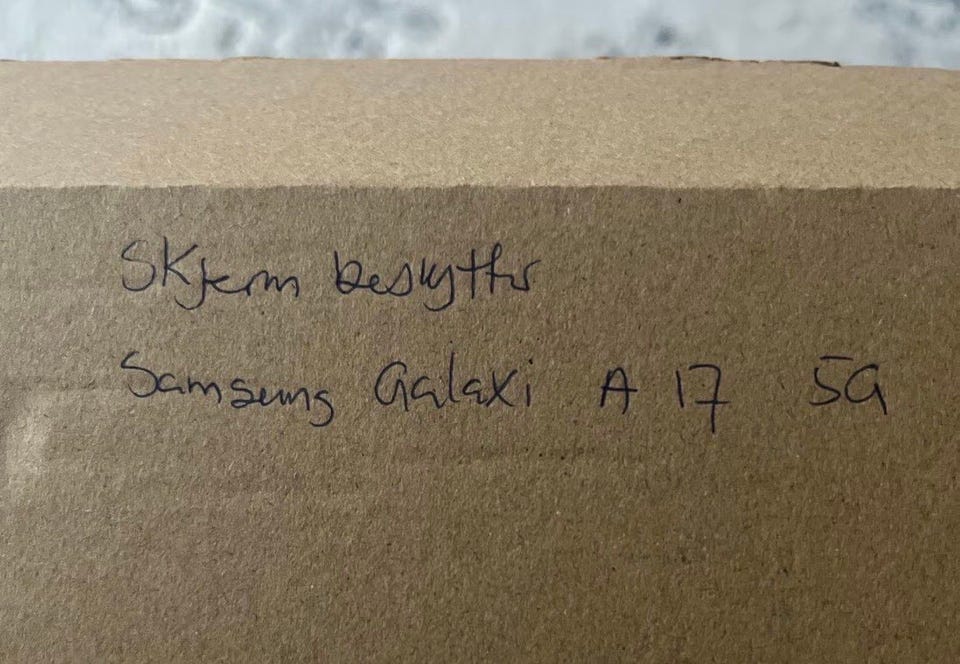 Skjerm beskytter
Samsung Galaxi A 17 5G